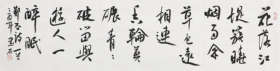 花落江
堤簇暖
烟雨余
草色远
相連
香輪莫
碾青青
破留與
遊人一
醉眠